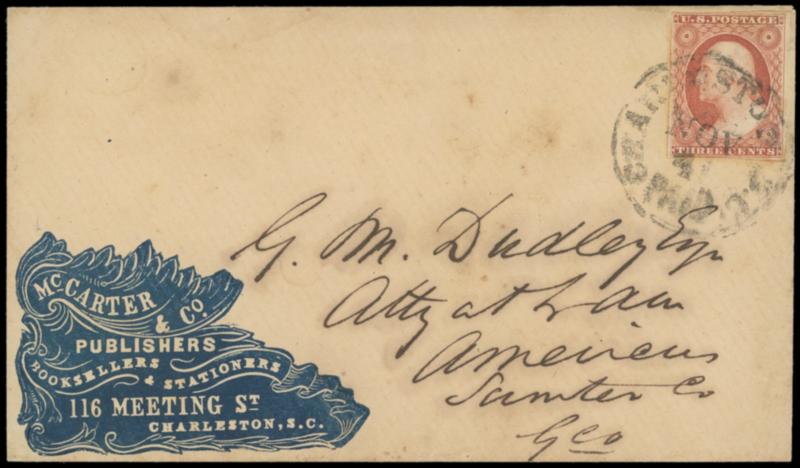 U.S. POSTAGE
THREE CENTS
CHARLESTON
NOV
PAID
G. M. Dudley Esqr
Atty at Law
Americus
Sumter Co
Geo
McCARTER
& Co.
PUBLISHERS
BOOKSELLERS & STATIONERS
116 MEETING ST
CHARLESTON, S.C.